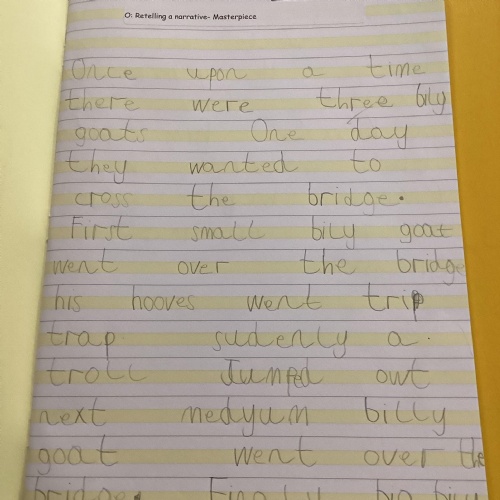 O: Retelling a narrative- Masterpiece
Once upon a time
there were three bily
goats One day
they wanted to
cross the bridge.
First small bily goat
went over the bridge
his hooves went trip
trap sudenly a.
troll Jumped owt
next medyum billy
goat went over the
bridge. Finaly big